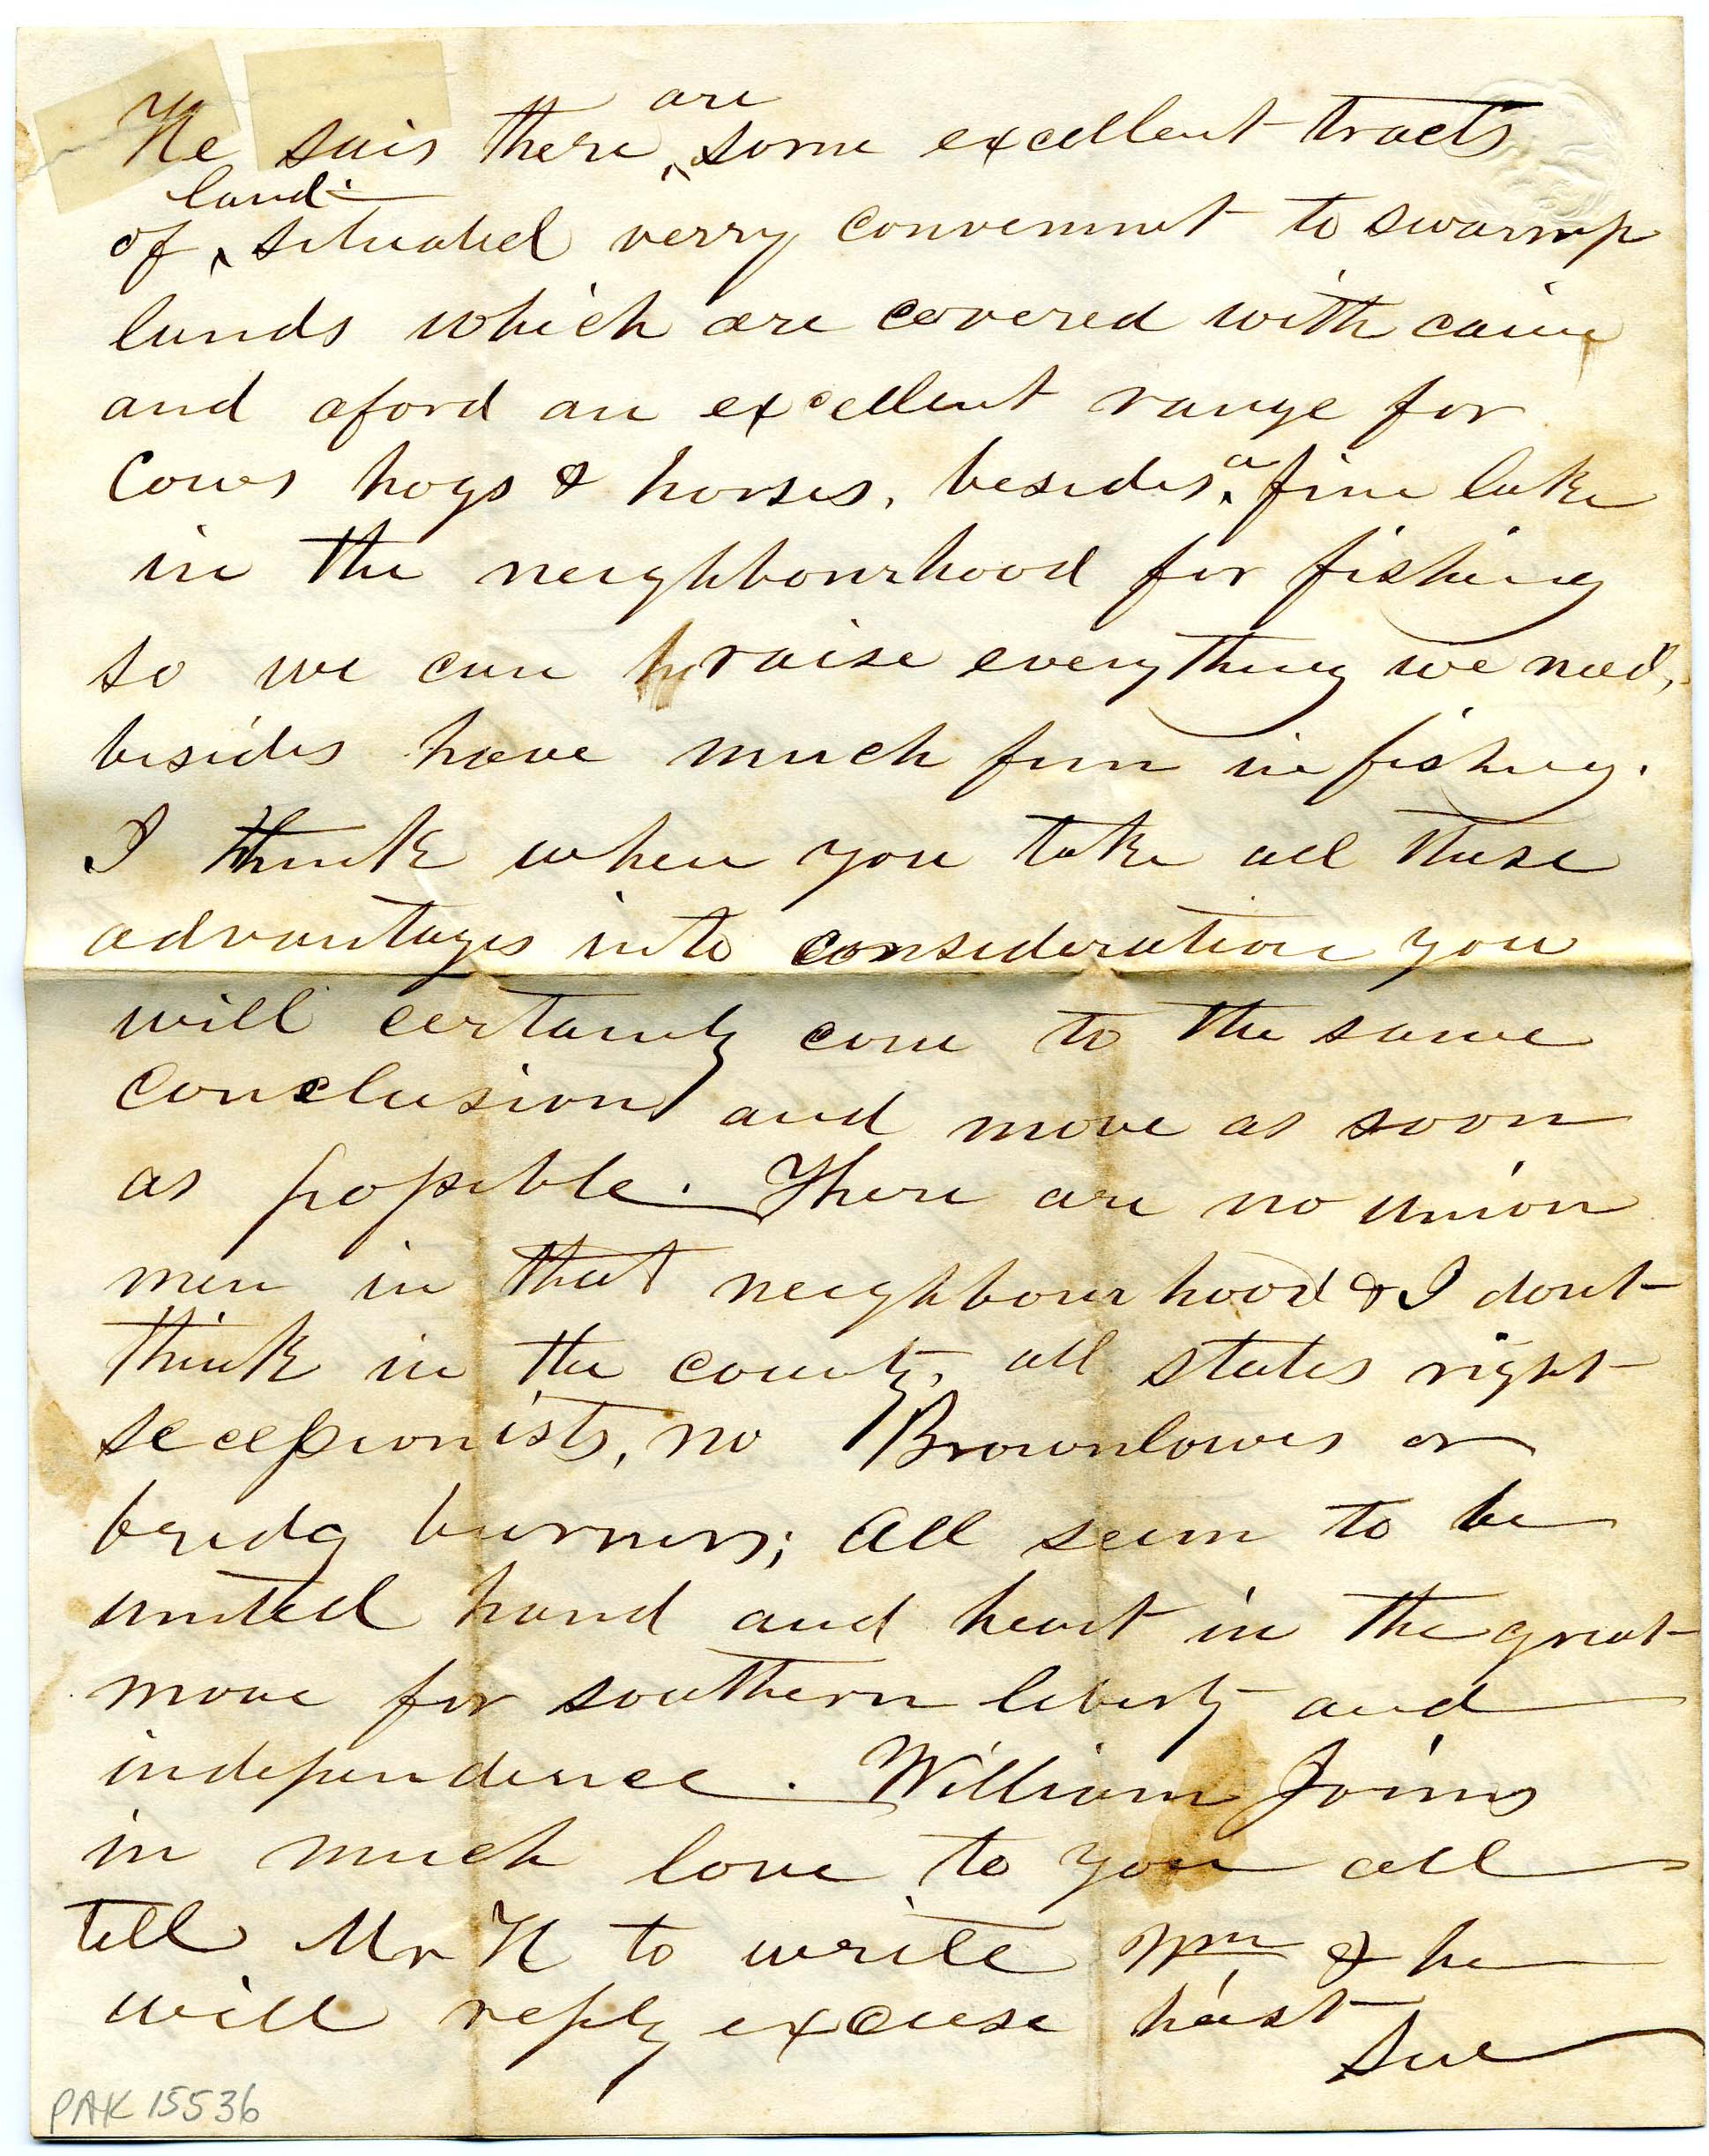 He sais there are some excellent tracts
of land situated verry convenient to swamp
lands which are covered with caine
and aford an excellent range for
Cows hogs & horses, besides a fine lake
in the neighbourhood for fishing
so we can raise everything we need,
besides have much fun in fishing.
I think when you take all these
advantages into consideration you
will certainly come to the same
Conclusion and move as soon
as possible. There are no union
men in that neighbourhood & I dont
think in the county, all states right
secessionists, no Brownlows or
bridg burners; all seem to be
united hand and heart in the great
move for southern liberty and
independence. William Joins
in much love to you all
tell Mr N to write Wm & he
will reply excuse hast
Sue
PAK 15536